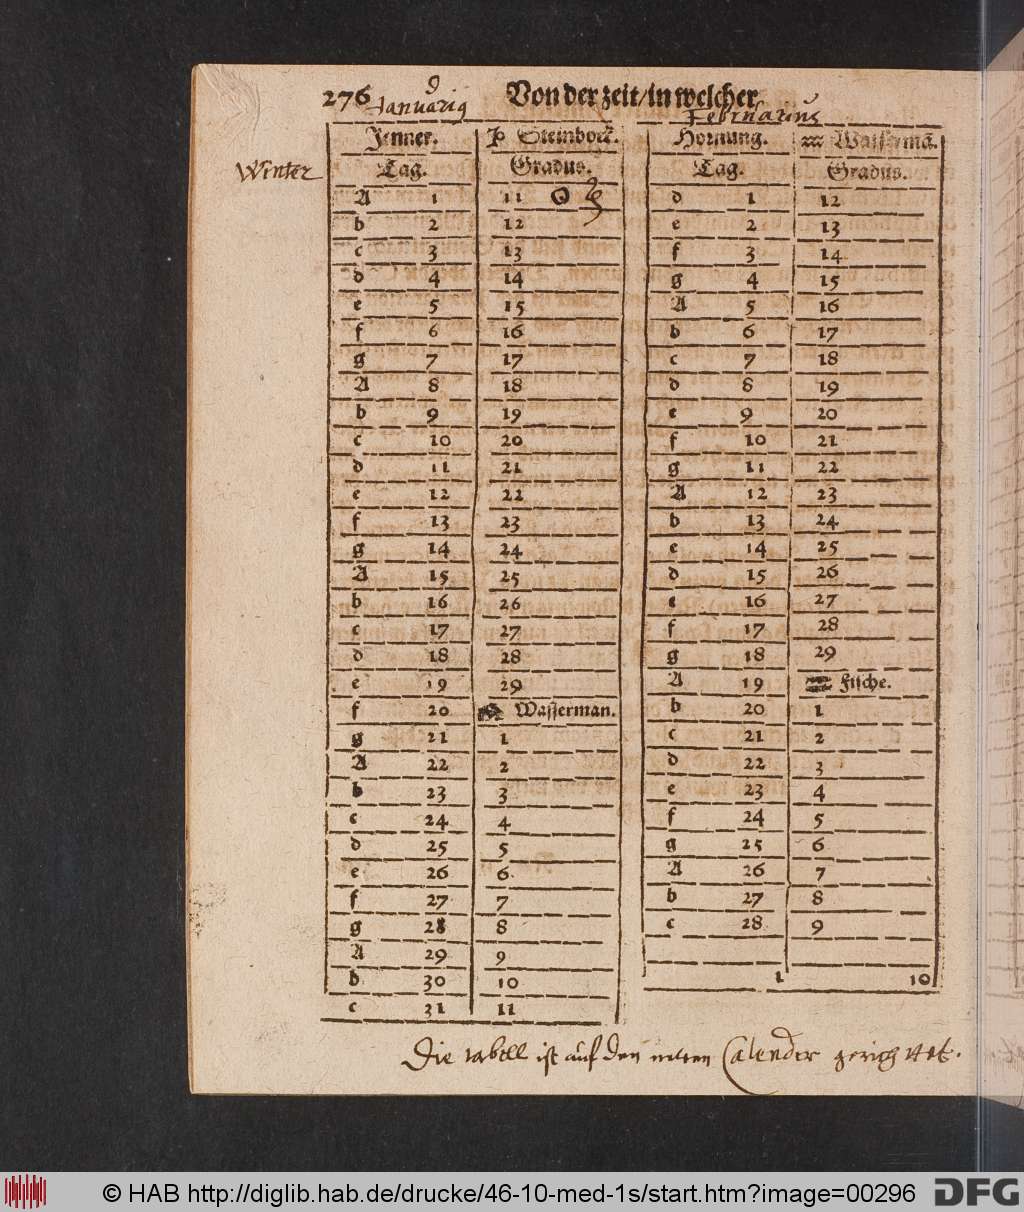 276 Von der zeit/in welcher
Januarius Februarius
Winter
Jenner. ♑ Steinbock.
Tag. Gradus.
A 1 11 ☉
b 2 12
c 3 13
d 4 14
e 5 15
f 6 16
g 7 17
A 8 18
b 9 19
c 10 20
d 11 21
e 12 22
f 13 23
g 14 24
A 15 25
b 16 26
c 17 27
d 18 28
e 19 29
f 20 Wasserman.
g 21 1
A 22 2
b 23 3
c 24 4
d 25 5
e 26 6
f 27 7
g 28 8
A 29 9
b 30 10
c 31 11
Hornung. ♒ Wassermā.
Tag. Gradus.
d 1 12
e 2 13
f 3 14
g 4 15
A 5 16
b 6 17
c 7 18
d 8 19
e 9 20
f 10 21
g 11 22
A 12 23
b 13 24
e 14 25
d 15 26
e 16 27
f 17 28
g 18 29
A 19 Fische.
b 20 1
c 21 2
d 22 3
e 23 4
f 24 5
g 25 6
A 26 7
b 27 8
c 28 9
1 10
Die tabell ist auf den alten Calender gerichtet.
© HAB http://diglib.hab.de/drucke/46-10-med-1s/start.htm?image=00296 DFG